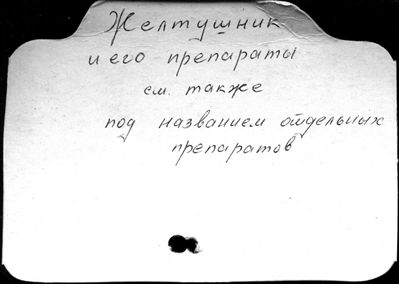 Желтушник
и его препараты
см. также
под названием отдельных
препаратов